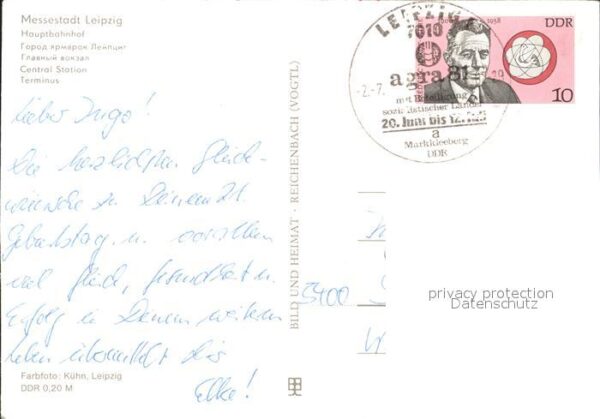 Messestadt Leipzig
Hauptbahnhof
Город ярмарок Лейпциг
Главный вокзал
Central Station
Terminus
Lieber Ingo!
Die herzlichsten Glück-
wünsche zu Deinem 21.
Geburtstag u. vor allem
viel Glück, Gesundheit u.
Erfolg in Deinem weiteren
Leben übermittelt Dir
Elke!
Farbfoto: Kühn, Leipzig
DDR 0,20 M
BILD UND HEIMAT · REICHENBACH (VOGTL)
LEIPZIG
7010
agra 81
-2.-7.
mit Beteiligung
sozialistischer Länder
20. Juni bis 12. Juli
a
Markkleeberg
DDR
1958
DDR
10
5400
privacy protection
Datenschutz